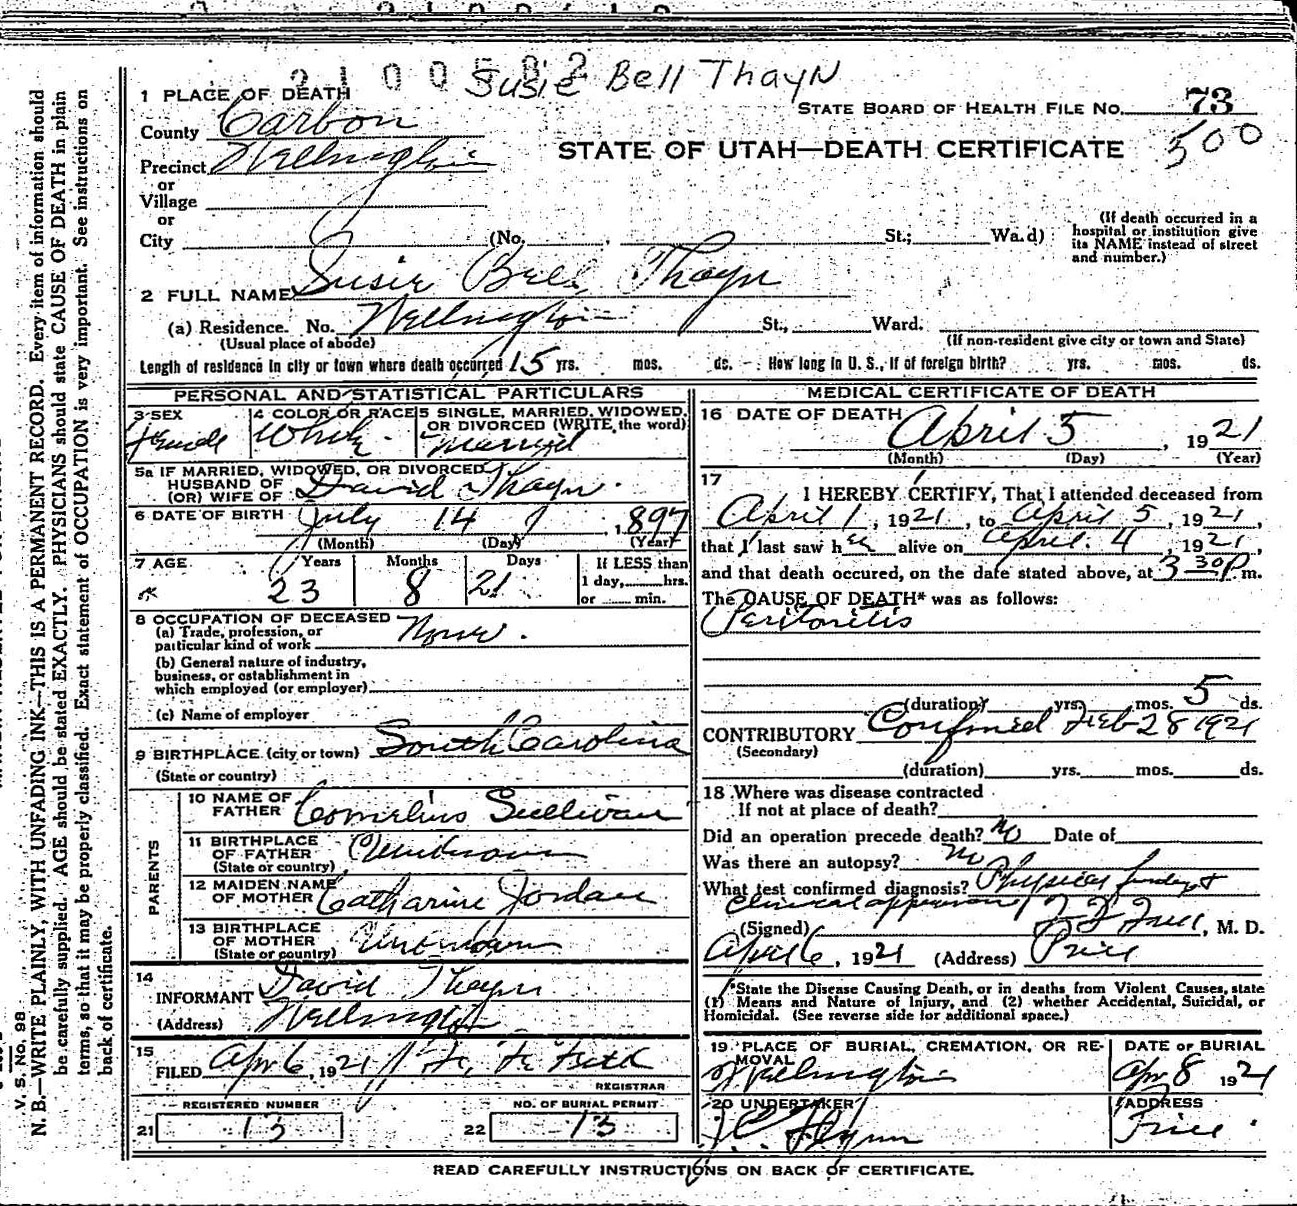 2100582
Susie Bell Thayn
1 PLACE OF DEATH
STATE BOARD OF HEALTH FILE NO. 73
County Carbon
500
STATE OF UTAH—DEATH CERTIFICATE
Precinct Wellington
or
Village
or
City (No. St.; Ward)
(If death occurred in a hospital or institution give its NAME instead of street and number.)
2 FULL NAME Susie Bell Thayn
(a) Residence. No. Wellington St., Ward.
(Usual place of abode) (If non-resident give city or town and State)
Length of residence in city or town where death occurred 15 yrs. mos. ds. How long in U. S., if of foreign birth? yrs. mos. ds.
PERSONAL AND STATISTICAL PARTICULARS
3 SEX Female
4 COLOR OR RACE White
5 SINGLE, MARRIED, WIDOWED, OR DIVORCED (WRITE the word) Married
5a IF MARRIED, WIDOWED, OR DIVORCED
HUSBAND OF
(OR) WIFE OF David Thayn.
6 DATE OF BIRTH July 14, 1897
(Month) (Day) (Year)
7 AGE Years Months Days If LESS than
1 day, hrs.
or min.
23 8 21
8 OCCUPATION OF DECEASED
(a) Trade, profession, or
particular kind of work None.
(b) General nature of industry,
business, or establishment in
which employed (or employer)
(c) Name of employer
9 BIRTHPLACE (city or town) South Carolina
(State or country)
PARENTS
10 NAME OF FATHER Cornelius Sullivan
11 BIRTHPLACE OF FATHER (State or country) Unknown
12 MAIDEN NAME OF MOTHER Catharine Jordan
13 BIRTHPLACE OF MOTHER (State or country) Unknown
14
INFORMANT David Thayn
(Address) Wellington
15
FILED Apr 6, 1921
REGISTRAR
REGISTERED NUMBER NO. OF BURIAL PERMIT
21 13 22 13
MEDICAL CERTIFICATE OF DEATH
16 DATE OF DEATH April 5, 1921
(Month) (Day) (Year)
17
I HEREBY CERTIFY, That I attended deceased from
April 1, 1921, to April 5, 1921,
that I last saw her alive on April 4, 1921,
and that death occured, on the date stated above, at 3 30 P. m.
The CAUSE OF DEATH* was as follows:
Peritonitis
(duration) yrs. mos. 5 ds.
CONTRIBUTORY Confined Feb 28 1921
(Secondary)
(duration) yrs. mos. ds.
18 Where was disease contracted
If not at place of death?
Did an operation precede death? No Date of
Was there an autopsy? No
What test confirmed diagnosis? Physical findings &
Clinical
(Signed) M. D.
April 6, 1921 (Address) Price
*State the Disease Causing Death, or in deaths from Violent Causes, state
(1) Means and Nature of Injury, and (2) whether Accidental, Suicidal, or
Homicidal. (See reverse side for additional space.)
19 PLACE OF BURIAL, CREMATION, OR REMOVAL
Wellington
DATE OF BURIAL
Apr 8 1921
20 UNDERTAKER
J. E. Flynn
ADDRESS
Price.
READ CAREFULLY INSTRUCTIONS ON BACK OF CERTIFICATE.
V. S. No. 98
N. B.—WRITE PLAINLY, WITH UNFADING INK—THIS IS A PERMANENT RECORD. Every item of information should
be carefully supplied. AGE should be stated EXACTLY. PHYSICIANS should state CAUSE OF DEATH in plain
terms, so that it may be properly classified. Exact statement of OCCUPATION is very important. See instructions on
back of certificate.